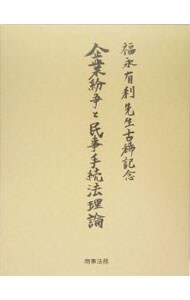 福永有利先生古稀記念
企業紛争と民事手続法理論
商事法務